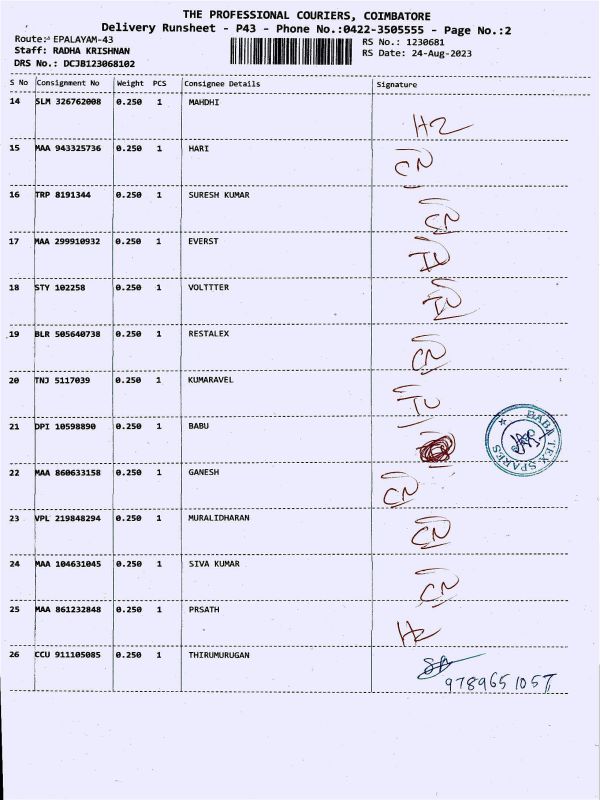 THE PROFESSIONAL COURIERS, COIMBATORE
Delivery Runsheet - P43 - Phone No.:0422-3505555 - Page No.:2
Route: EPALAYAM-43
RS No.: 1230681
Staff: RADHA KRISHNAN
RS Date: 24-Aug-2023
DRS No.: DCJB123068102
S No Consignment No Weight PCS Consignee Details Signature
14 SLM 326762008 0.250 1 MAHDHI
H2
15 MAA 943325736 0.250 1 HARI
CN
16 TRP 8191344 0.250 1 SURESH KUMAR
17 MAA 299910932 0.250 1 EVERST
18 STY 102258 0.250 1 VOLTTTER
19 BLR 505640738 0.250 1 RESTALEX
CN
20 TNJ 5117039 0.250 1 KUMARAVEL
21 DPI 10598890 0.250 1 BABU
BABA TEX SPARES
22 MAA 860633158 0.250 1 GANESH
CN
23 VPL 219848294 0.250 1 MURALIDHARAN
CN
24 MAA 104631045 0.250 1 SIVA KUMAR
CN
25 MAA 861232848 0.250 1 PRSATH
H2
26 CCU 911105085 0.250 1 THIRUMURUGAN
9789651057